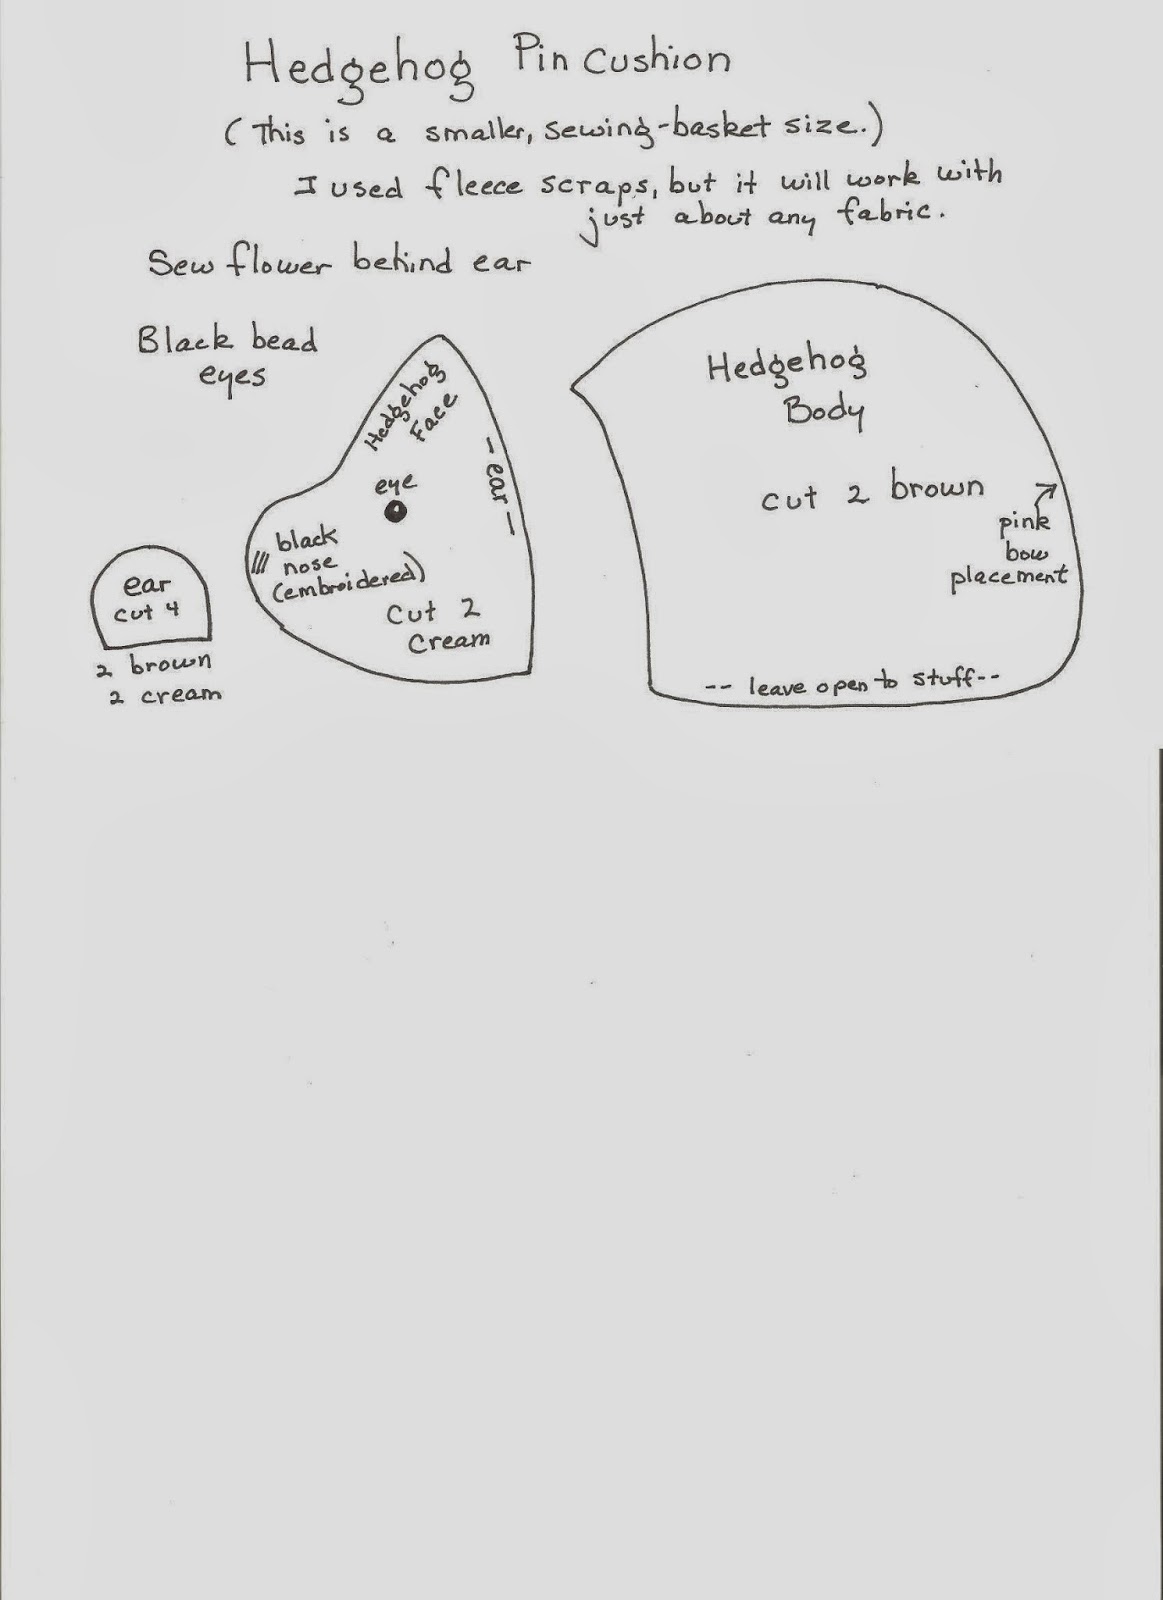 Hedgehog Pin Cushion
(This is a smaller, sewing-basket size.)
I used fleece scraps, but it will work with
just about any fabric.
Sew flower behind ear
Black bead
eyes
ear
cut 4
2 brown
2 cream
Hedgehog
Face
- ear -
eye
black
nose
(embroidered)
Cut 2
Cream
Hedgehog
Body
cut 2 brown
pink
bow
placement
-- leave open to stuff--